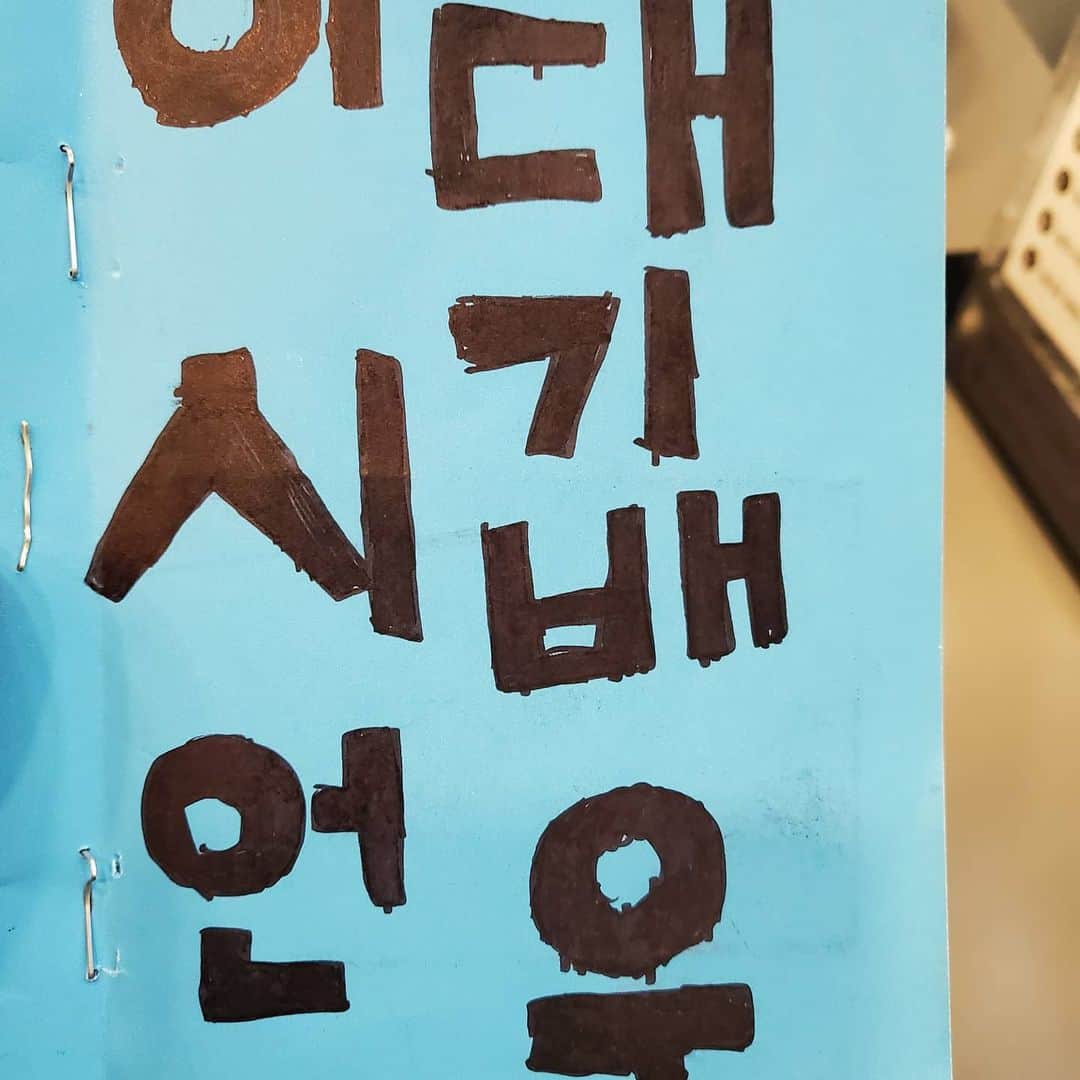 이시언
대기배우